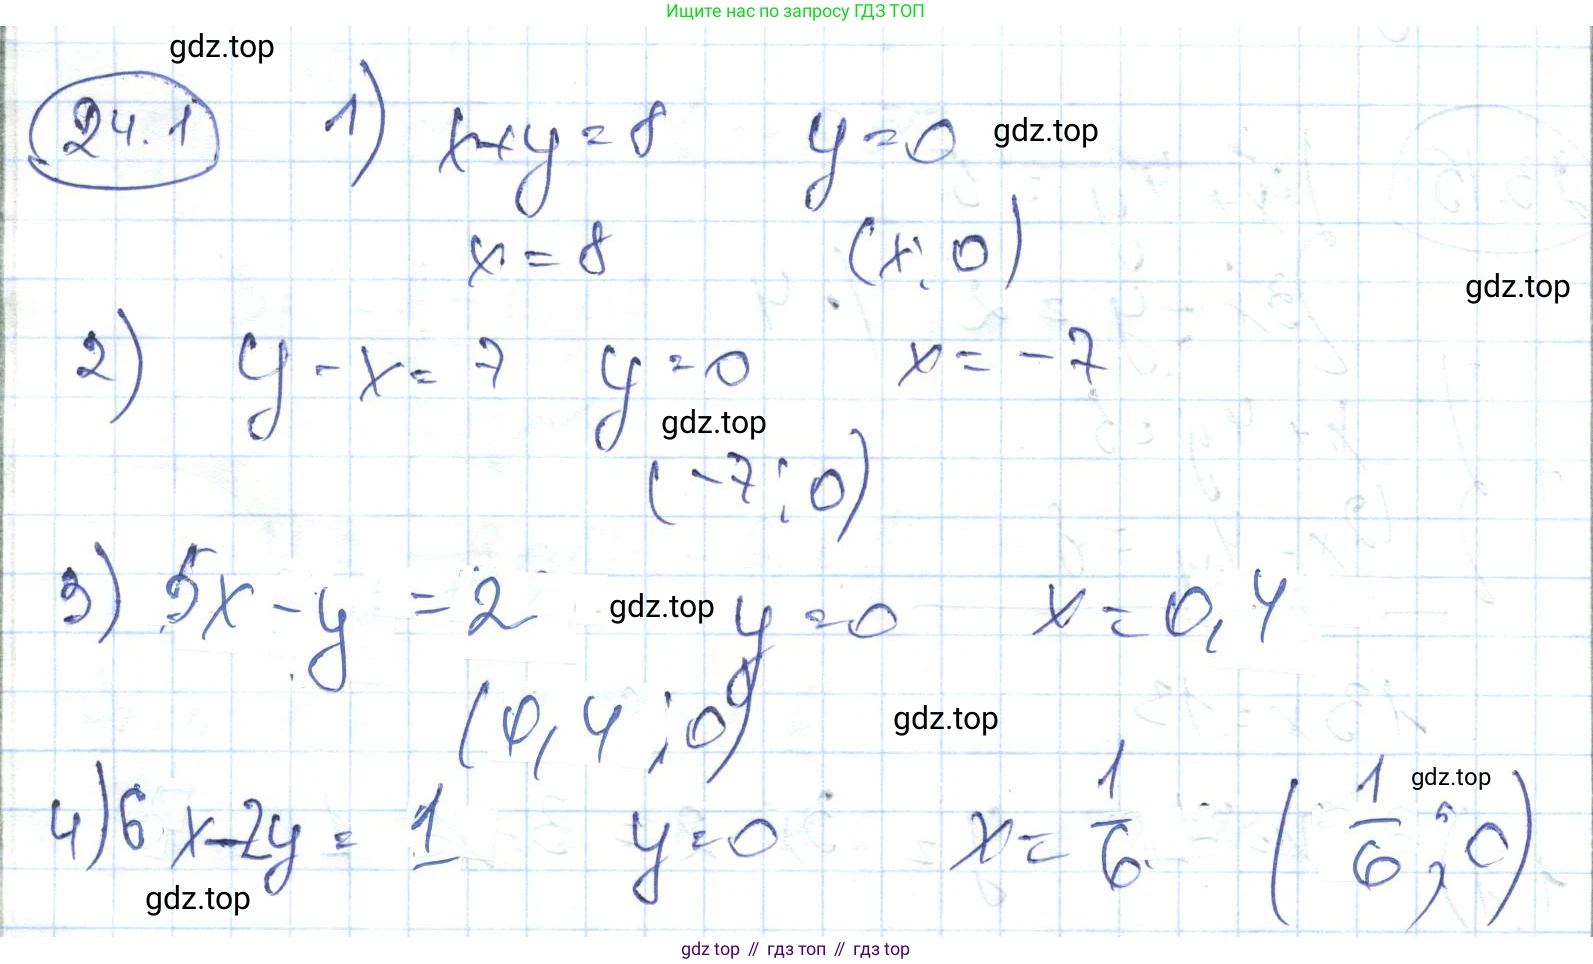 Ищите нас по запросу ГДЗ ТОП
gdz.top
24.1 1) x+y=8 y=0 gdz.top
x=8 (x; 0)
gdz.top
2) y-x=7 y=0 x=-7
gdz.top
(-7; 0)
3) 5x-y=2 gdz.top y=0 x=0,4
(0,4; 0) gdz.top
4) 6x-2y=1 y=0 x=1/6 (1/6; 0) gdz.top
gdz.top
gdz top // гдз топ // гдз top